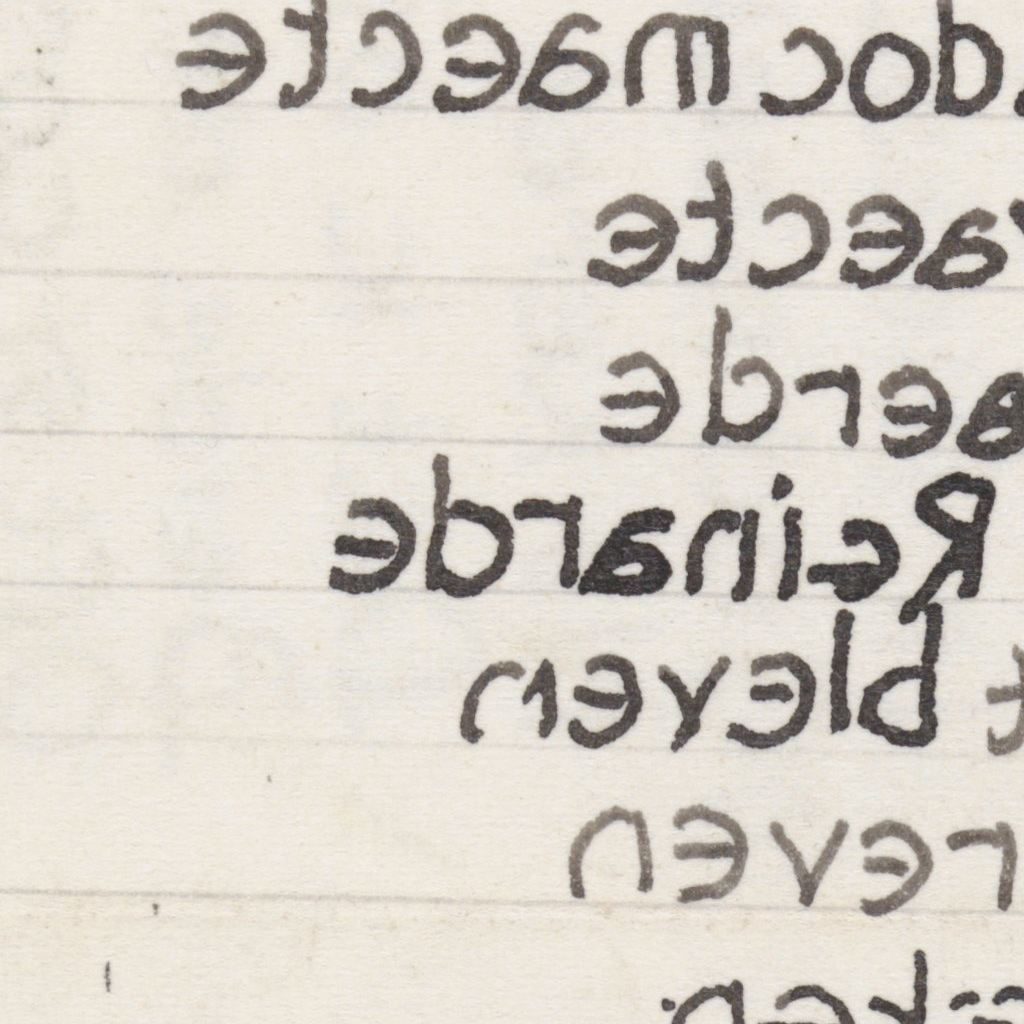 doc maecte
aecte
aerde
Reinarde
t bleven
reven